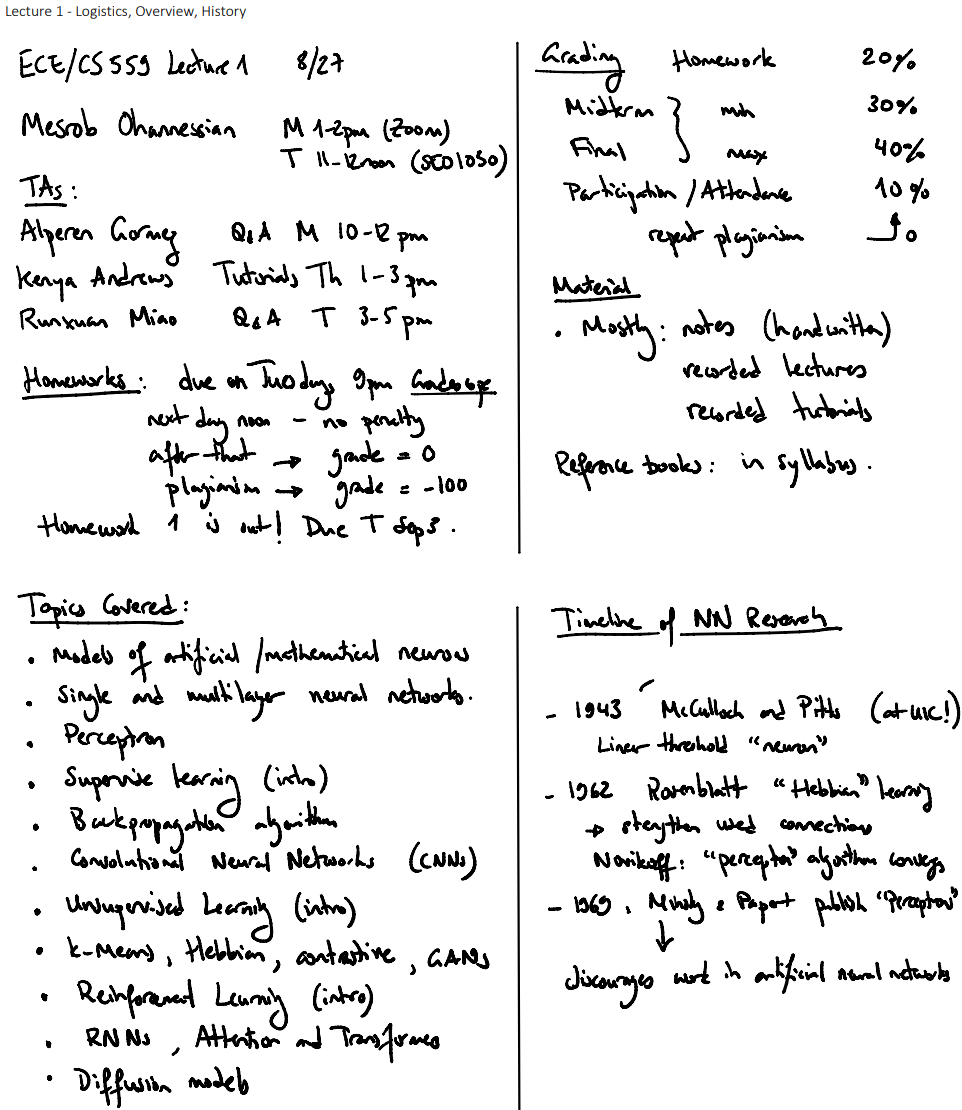 Lecture 1 - Logistics, Overview, History
ECE/CS 559 Lecture 1 8/27
Mesrob Ohannessian M 1-2pm (Zoom)
T 11-12noon (SEO1050)
TAs:
Alperen Gormez Q&A M 10-12 pm
Kenya Andrews Tutorials Th 1-3pm
Runxuan Miao Q&A T 3-5pm
Homeworks: due on Tuesdays 9pm Gradescope
next day noon - no penalty
after that → grade = 0
plagiarism → grade = -100
Homework 1 is out! Due T Sep 3.
Grading Homework 20%
Midterm } min 30%
Final } max 40%
Participation / Attendance 10%
repeat plagiarism 0
Material
• Mostly: notes (handwritten)
recorded lectures
recorded tutorials
Reference books: in syllabus.
Topics Covered:
• Models of artificial / mathematical neurons
• Single and multilayer neural networks.
• Perceptron
• Supervise learning (intro)
• Backpropagation algorithm
• Convolutional Neural Networks (CNNs)
• Unsupervised Learning (intro)
• k-Means, Hebbian, contrastive, GANs
• Reinforcement Learning (intro)
• RNNs, Attention and Transformers
• Diffusion models
Timeline of NN Research
- 1943 McCulloch and Pitts (at UIC!)
Linear threshold "neuron"
- 1962 Rosenblatt "Hebbian" learning
→ strengthen used connections
Novikoff: "perceptron" algorithm converges
- 1969, Minsky & Papert publish "Perceptrons"
↓
discourages work in artificial neural networks